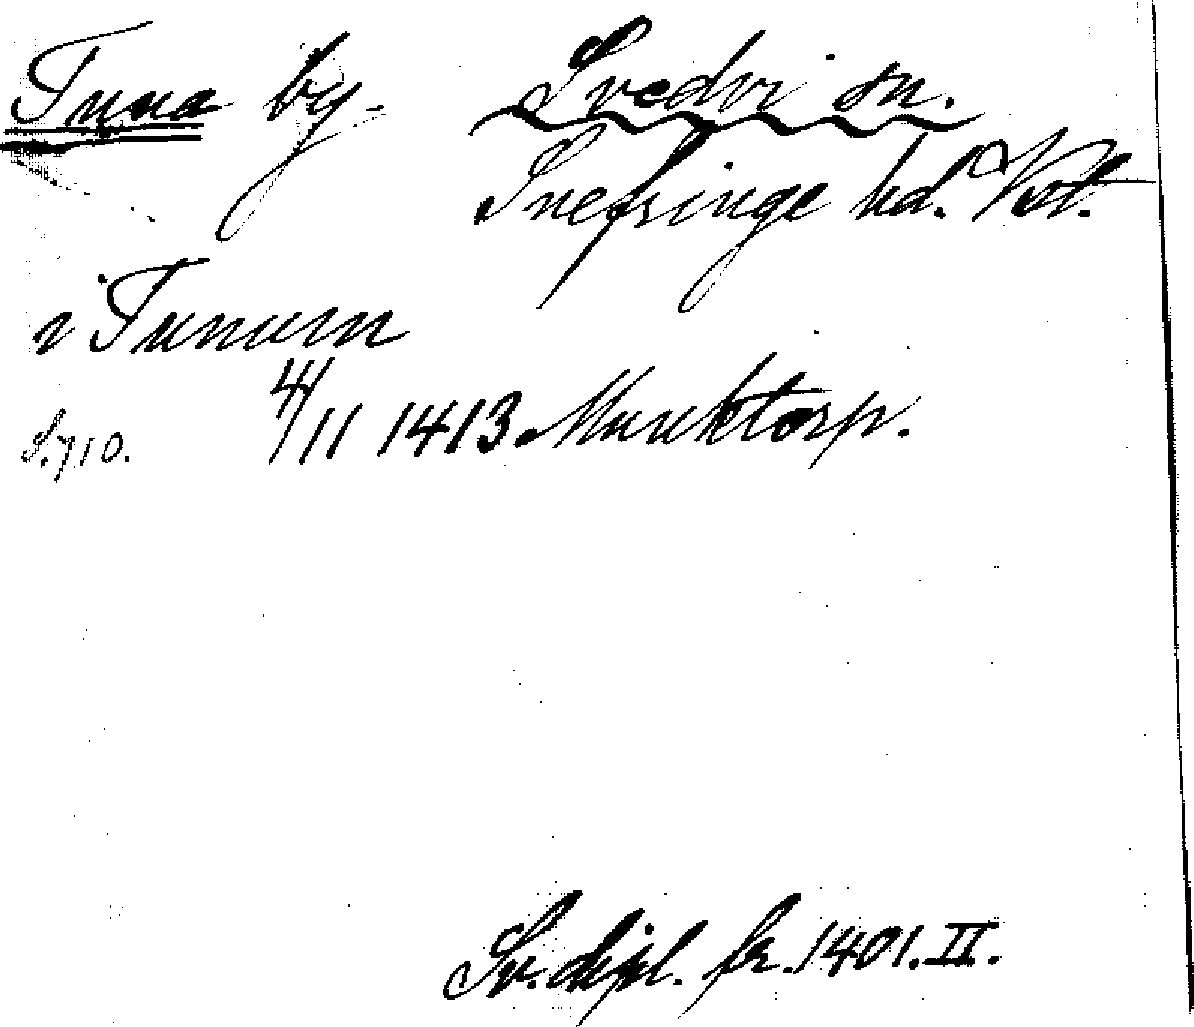 Tuna by. Svedvi sn.
Snefringe hd. Vstl.
i Tunum
4/11 1413. Munktorp.
S. 710.
Sv. dipl. fr. 1401. II.